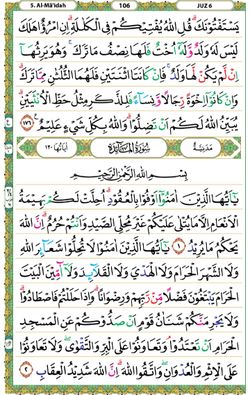 5. Al-Mā'idah 106 JUZ 6
يَسْتَفْتُونَكَ قُلِ اللّٰهُ يُفْتِيْكُمْ فِى الْكَلٰلَةِ اِنِ امْرُؤٌا هَلَكَ
لَيْسَ لَهٗ وَلَدٌ وَّلَهٗٓ اُخْتٌ فَلَهَا نِصْفُ مَا تَرَكَ وَهُوَ يَرِثُهَآ
اِنْ لَّمْ يَكُنْ لَّهَا وَلَدٌ فَاِنْ كَانَتَا اثْنَتَيْنِ فَلَهُمَا الثُّلُثٰنِ مِمَّا تَرَكَ
وَاِنْ كَانُوْٓا اِخْوَةً رِّجَالًا وَّنِسَآءً فَلِلذَّكَرِ مِثْلُ حَظِّ الْاُنْثَيَيْنِ
يُبَيِّنُ اللّٰهُ لَكُمْ اَنْ تَضِلُّوْا وَاللّٰهُ بِكُلِّ شَيْءٍ عَلِيْمٌ ١٧٦
مَدَنِيَّةٌ سُوْرَةُ الْمَآئِدَةِ اٰيَاتُهَا ١٢٠
بِسْمِ اللّٰهِ الرَّحْمٰنِ الرَّحِيْمِ
يٰٓاَيُّهَا الَّذِيْنَ اٰمَنُوْٓا اَوْفُوْا بِالْعُقُوْدِ اُحِلَّتْ لَكُمْ بَهِيْمَةُ
الْاَنْعَامِ اِلَّا مَا يُتْلٰى عَلَيْكُمْ غَيْرَ مُحِلِّى الصَّيْدِ وَاَنْتُمْ حُرُمٌ اِنَّ اللّٰهَ
يَحْكُمُ مَا يُرِيْدُ ١ يٰٓاَيُّهَا الَّذِيْنَ اٰمَنُوْا لَا تُحِلُّوْا شَعَآئِرَ اللّٰهِ
وَلَا الشَّهْرَ الْحَرَامَ وَلَا الْهَدْيَ وَلَا الْقَلَآئِدَ وَلَآ آٰمِّيْنَ الْبَيْتَ
الْحَرَامَ يَبْتَغُوْنَ فَضْلًا مِّنْ رَّبِّهِمْ وَرِضْوَانًا وَاِذَا حَلَلْتُمْ فَاصْطَادُوْا
وَلَا يَجْرِمَنَّكُمْ شَنَاٰنُ قَوْمٍ اَنْ صَدُّوْكُمْ عَنِ الْمَسْجِدِ
الْحَرَامِ اَنْ تَعْتَدُوْا وَتَعَاوَنُوْا عَلَى الْبِرِّ وَالتَّقْوٰى وَلَا تَعَاوَنُوْا
عَلَى الْاِثْمِ وَالْعُدْوَانِ وَاتَّقُوا اللّٰهَ اِنَّ اللّٰهَ شَدِيْدُ الْعِقَابِ ٢